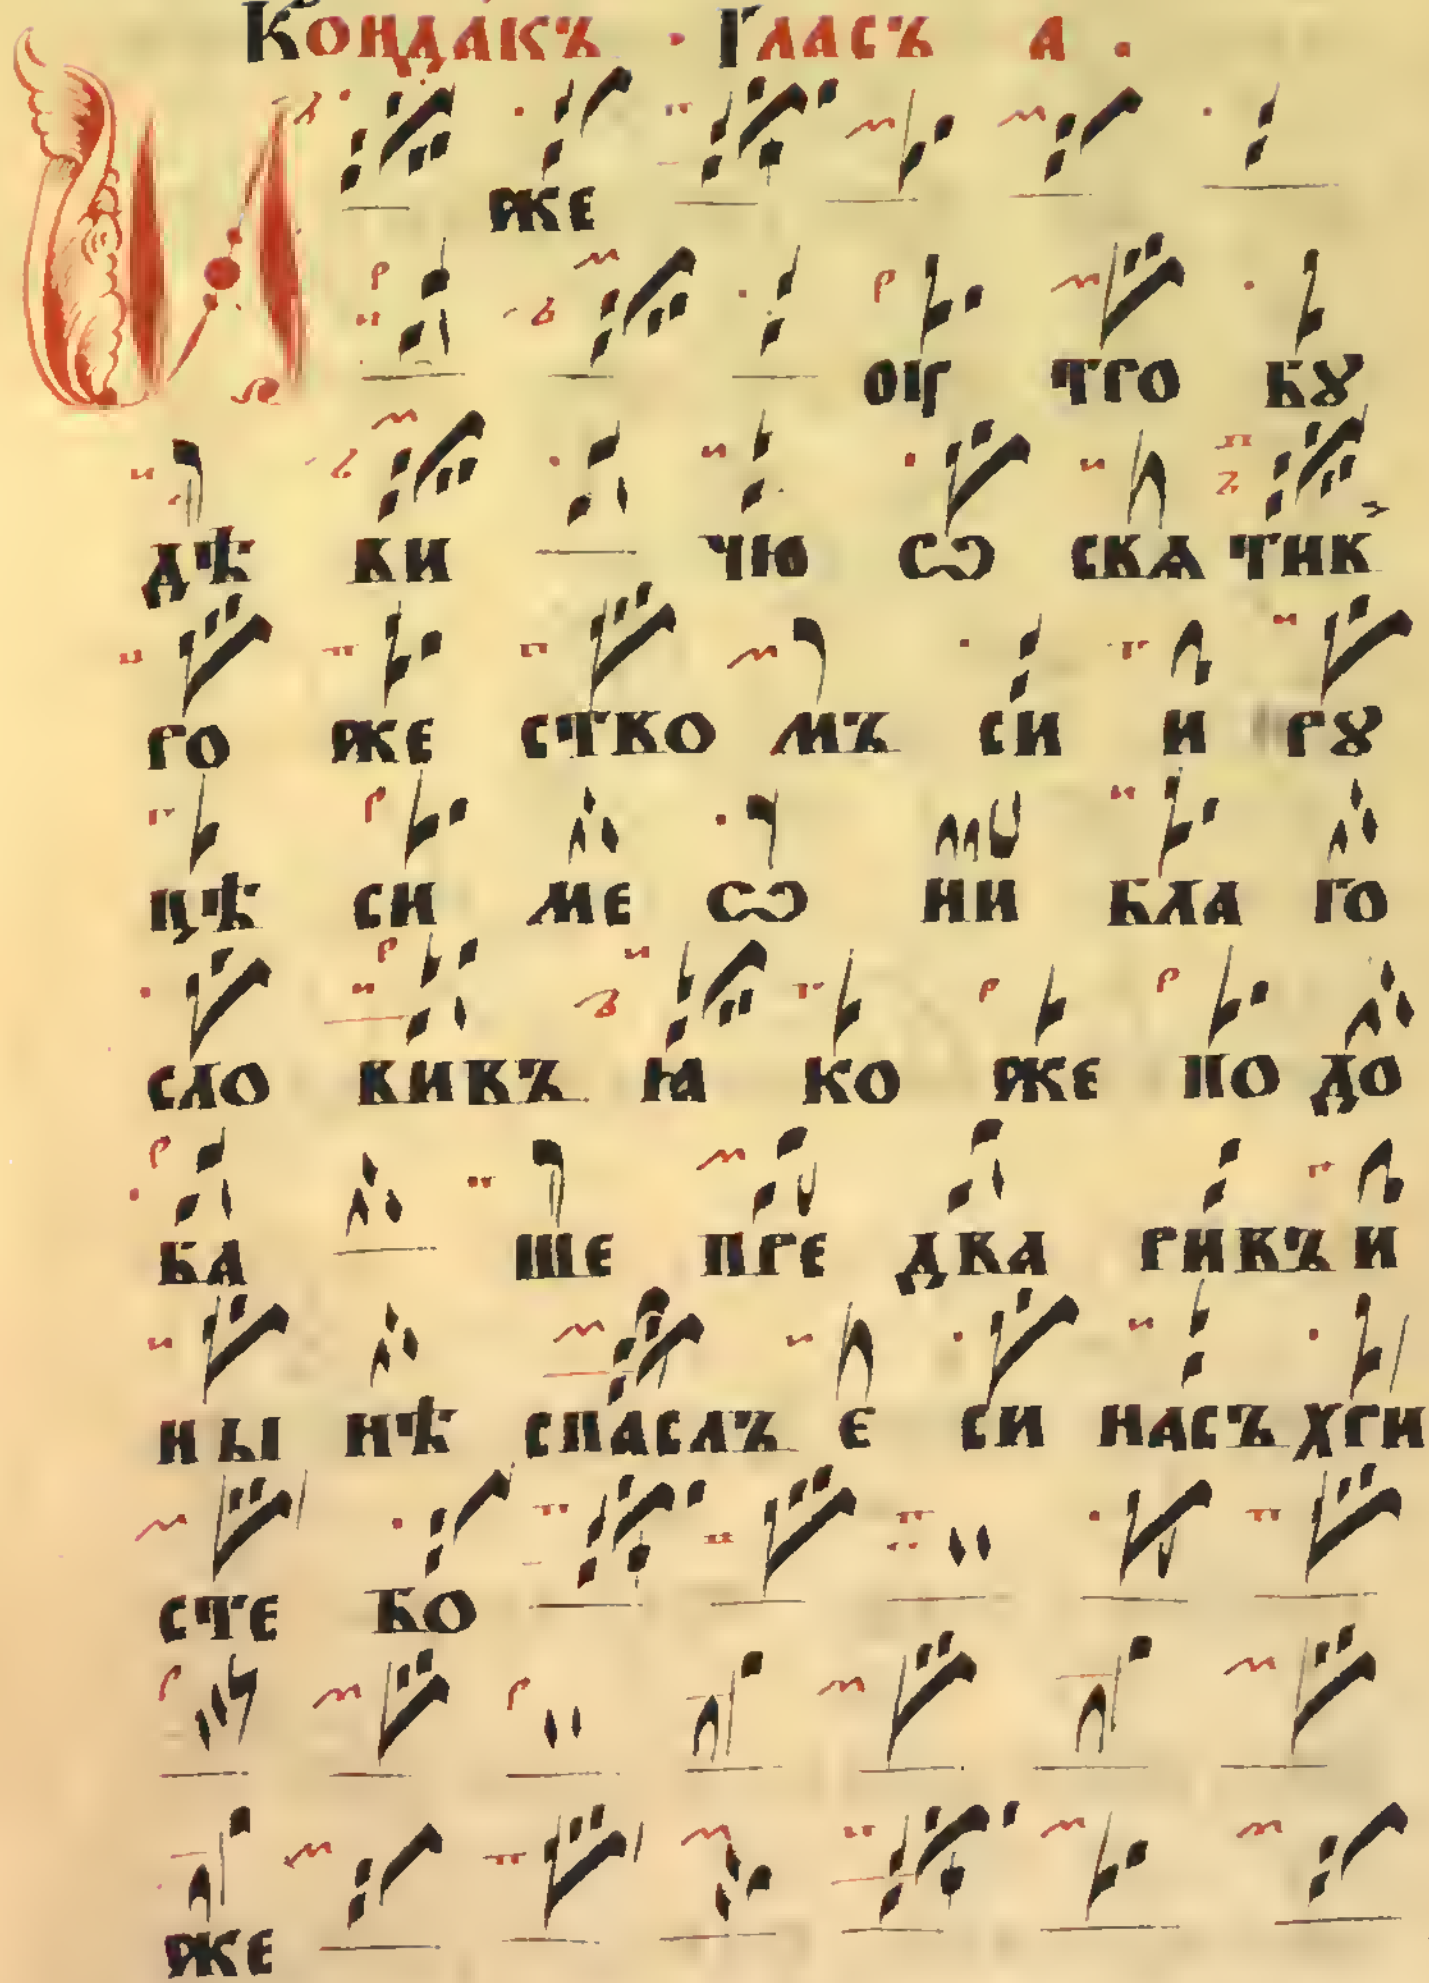 Кондакъ · Гласъ а .
И же
ꙋ тро бꙋ
дѣ ви чю ѿ свѧ тив
ро же ство мъ си и рꙋ
цѣ си ме ѿ ни бла го
сло вивъ ꙗ ко же по до
ба ше пре два ривъ и
ны нѣ спаслъ е си насъ хри
сте бо
же